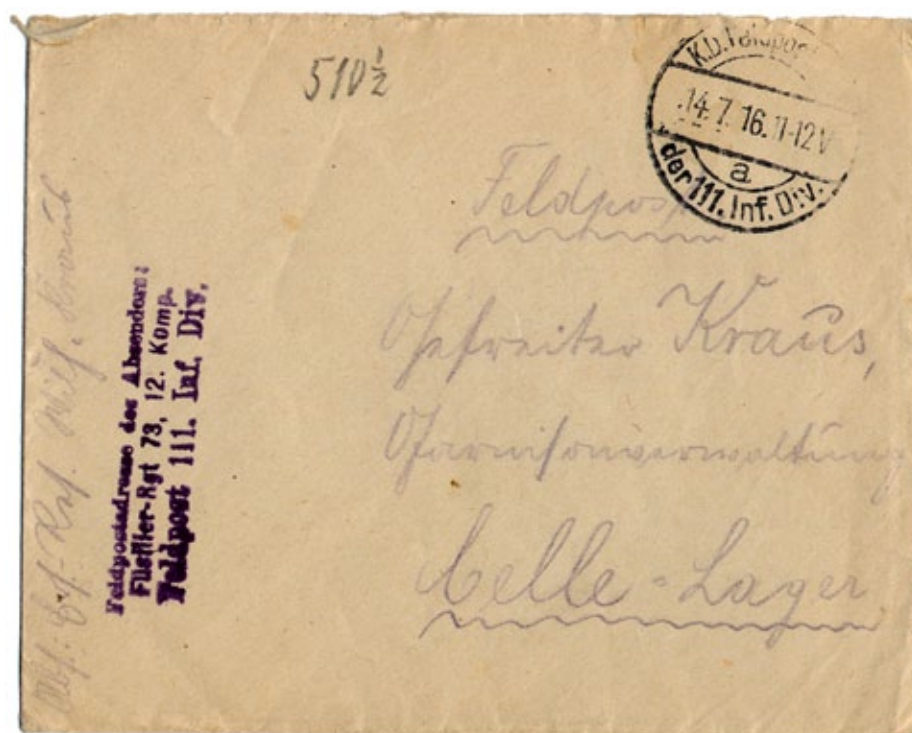 510½
K.D. Feldpos
14.7.16. 11-12 V
a
der 111. Inf. Div.
Feldpost
Gefreiter Kraus,
Garnisonverwaltung
Celle-Lager
Feldpostadresse des Absenders:
Füsilier-Rgt 73, 12. Komp.
Feldpost 111. Inf. Div.
Abs: Ers.-Res. Wilh. Kraus